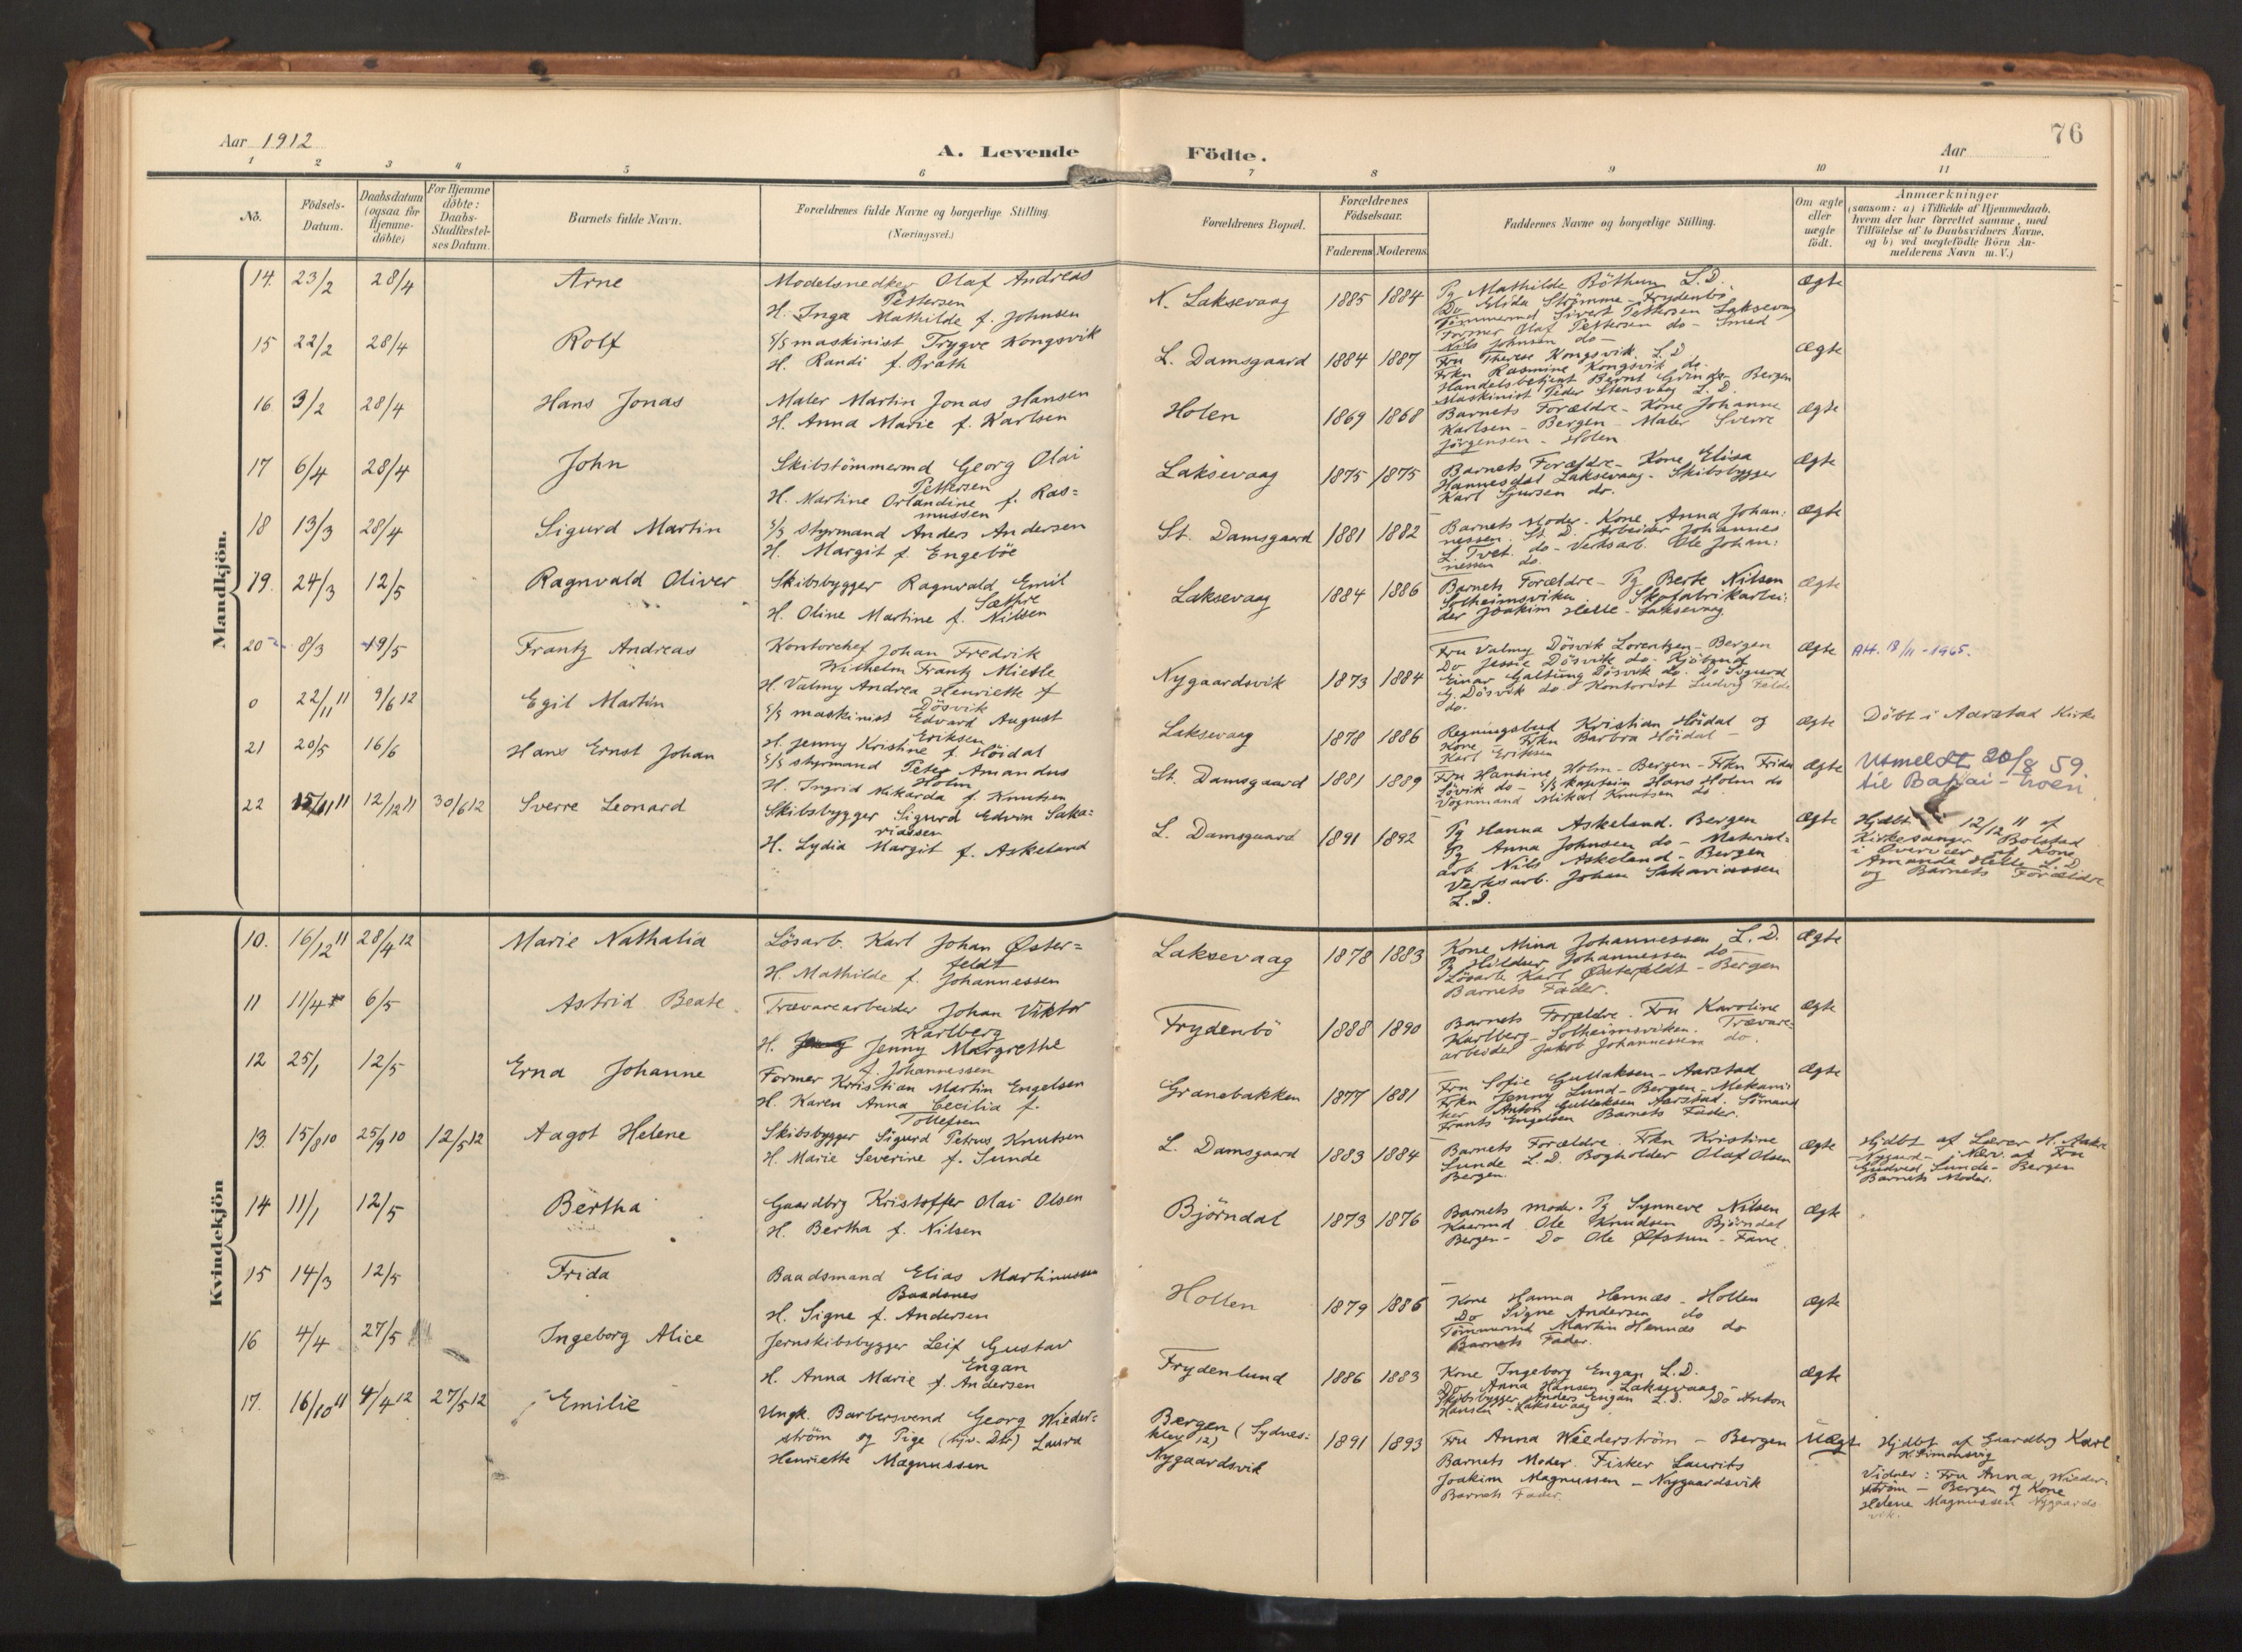 76
Aar 1912
A. Levende
Födte.
Aar
1 2 3 4 5 6 7 8 9 10 11
No.
Födsels-Datum.
Daabsdatum (ogsaa för Hjemme-döbte)
For Hjemme döbte: Daabs-Stadfæstelses Datum.
Barnets fulde Navn.
Forældrenes fulde Navne og borgerlige Stilling.
(Næringsvei.)
Forældrenes Bopæl.
Forældrenes Födselsaar.
Faderens Moderens
Faddernes Navne og borgerlige Stilling.
Om ægte eller uægte födt.
Anmærkninger
(saasom: a) i Tilfælde af Hjemmedaab,
hvem der har forrettet samme, med
Tilföielse af to Daabsvidners Navne.
og b) ved uægtefödte Börn An-
melderens Navn m.V.)
Mandkjön.
14. 23/2 28/4 Arne
Modelsnedker Olaf Andreas
Pettersen
H. Inga Mathilde f. Johnsen
N. Laksevaag 1885 1884
Pg Mathilde Böthun L.D.
Do Elida Strömme - Frydenbö
Tömmermd Sivert Pettersen Laksevaag
Former Olaf Pettersen do - Smed
Nils Johnsen do -
Ægte
15 22/2 28/4 Rolf
S/S maskinist Trygve Kongsvik
H. Randi f. Brath
L. Damsgaard 1884 1887
Fru Therese Kongsvik L.D
Frkn Rasmine Kongsvik do.
Handelsbetjent Bernt Grinde Bergen
Maskinist Peder Stensvaag L.D.
Ægte
16 3/2 28/4 Hans Jonas
Maler Martin Jonas Hansen
H. Anna Marie f. Karlsen
Holen 1869 1868
Barnets Forældre - Kone Johanne
Karlsen - Bergen - Maler Sverre
Jörgensen - Holen
Ægte
17 6/4 28/4 John
Skibstömmermd Georg Olai
Pettersen
H. Martine Orlandine f. Ras=
mussen
Laksevaag 1875 1875
Barnets Forældre - Kone Elisa
Hannesdal Laksevaag - Skibsbygger
Karl Sjursen do.
Ægte
18 13/3 28/4 Sigurd Martin
S/S Styrmand Anders Andersen
H. Margit f. Engeböe
St. Damsgaard 1881 1882
Barnets Moder. Kone Anna Johan:
nessen St. D. Arbeider Johannes
L. Tvet. do - Verksarb. Ole Johan:
nessen do.
Ægte
19. 24/3 12/5 Ragnvald Oliver
Skibsbygger Ragnvald Emil
Sæthre
H. Oline Martine f. Nilsen
Laksevaag 1884 1886
Barnets Forældre - Pg Berte Nilsen
Solheimsviken. Skofabrikarbei:
der Joakim Helle - Laksevaag
Ægte
20 8/3 19/5 Frantz Andreas
Kontorchef Johan Fredrik
Wilhelm Frantz Mietle
H. Valmy Andrea Henriette f
Dösvik
Nygaardsvik 1873 1884
Fru Valmy Dösvik Lorentzen - Bergen
Do Jessie Dösvik do - Kjöbmd
Einar Galtung Dösvik do. Do Sigurd
G. Dösvik do. Kontorist Ludvig Felde
do.
Ægte
Att. 18/11 - 1965.
0 22/11 11 9/6 12 Egil Martin
S/S maskinist Edvard August
Eriksen
H. Jenny Kristine f. Höidal
Laksevaag 1878 1886
Regningsbud Kristian Höidal og
Kone - Frkn Barbra Höidal -
Karl Eriksen
Ægte
Döbt i Aarstad Kirke
21 20/5 16/6 Hans Ernst Johan
S/S styrmand Peter Amandus
Holm
H. Ingrid Nikarda f. Knutsen
St. Damsgaard 1881 1889
Fru Hansine Holm - Bergen - Frkn Frida
Sövik do - S/S kaptein Hans Holm do
Vognmand Mikal Knutsen do
Ægte
Utmeldt 20/8 59.
22 15/11 11 12/12 11 30/6 12 Sverre Leonard
Skibsbygger Sigurd Edvin Saka=
riassen
H. Lydia Margit f. Askeland
L. Damsgaard 1891 1892
Pg Hanna Askeland. Bergen
Pg Anna Johnsen do - Material:
arb. Nils Askeland - Bergen
Verksarb. Johan Sakariassen
L.D.
Ægte
Hjdbt 12/12 11 af
Kirkesanger Bolstad
i Overvær af Kone
Amanda Helle L.D
og Barnets Forældre
Kvindekjön
10. 16/12 11 28/4 12 Marie Nathalia
Lösarb. Karl Johan Öster=
feldt
H. Mathilde f. Johannessen
Laksevaag 1878 1883
Kone Mina Johannessen L.D.
Pg Hildur Johannessen do
Lösarb Karl Østerfeldt - Bergen
Barnets Fader.
Ægte
11 11/4 6/5 Astrid Beate
Trævarearbeider Johan Viktor
Karlberg
H. Jenny Margrethe
f. Johannessen
Frydenbö 1888 1890
Barnets Forældre. Fru Karoline
Karlberg - Solheimsviken. Trævare=
arbeider Jakob Johannessen do.
Ægte
12 25/1 12/5 Erna Johanne
Former Kristian Martin Engelsen
H. Karen Anna Cecilia f.
Tollefsen
Granebakken 1877 1881
Fru Sofie Gullaksen - Aarstad
Frkn Jenny Lund - Bergen - Mekani:
ker Anton Gullaksen Aarstad. Sömand
Frants Engelsen Barnets Fader.
Ægte
13. 15/8 10 25/9 10 12/5 12 Aagot Helene
Skibsbygger Sigurd Petrus Knutsen
H. Marie Severine f. Sunde
L. Damsgaard 1883 1884
Barnets Forældre. Frkn Kristine
Sunde L.D. Bogholder Olaf Olsen
Bergen.
Ægte
Hjdbt af Lærer H. Aakre
- Nygaard - i Nærv. af Fru
Gudved Sunde - Bergen
Barnets Moder.
14 11/1 12/5 Bertha
Gaardbrg Kristoffer Olai Olsen
H. Bertha f. Nilsen
Björndal 1873 1876
Barnets moder. Pg Synneve Nilsen
Kaarmd Ole Knudsen Björndal
Bergen - Do Ole Øfstun - Fane
Ægte
15 14/3 12/5 Frida
Baadsmand Elias Martinussen
Baadsnes
H. Signe f. Andersen
Hollen 1879 1886
Kone Hanna Hennæs - Hollen
Do Signe Andersen do
Tömmermd Martin Hennæs do
Barnets Fader.
Ægte
16 4/4 27/5 Ingeborg Alice
Jernskibsbygger Leif Gustav
Engan
H. Anna Marie f. Andersen
Frydenlund 1886 1883
Kone Ingeborg Engan L.D.
Do Anna Hansen - Laksevaag -
Skibsbygger Anders Engan L.D. Do Anton
Hansen - Laksevaag
Ægte
17. 16/10 11 4/4 12 27/5 12 Emilie
Ungk. Barbersvend Georg Wieder=
ström og Pige (hjv. Dtr) Laura
Henriette Magnussen
Bergen (Sydnes:
klev 12)
Nygaardsvik
1891 1893
Fru Anna Wiederström - Bergen
Barnets Moder. Fisker Laurits
Joakim Magnussen - Nygaardsvik
Barnets Fader.
Uægt
Hjdbt af Gaardbrg Karl
K. Simonsvig
Vidner: Fru Anna Wieder:
ström - Bergen og Kone
Helene Magnussen Nygaards
vik.